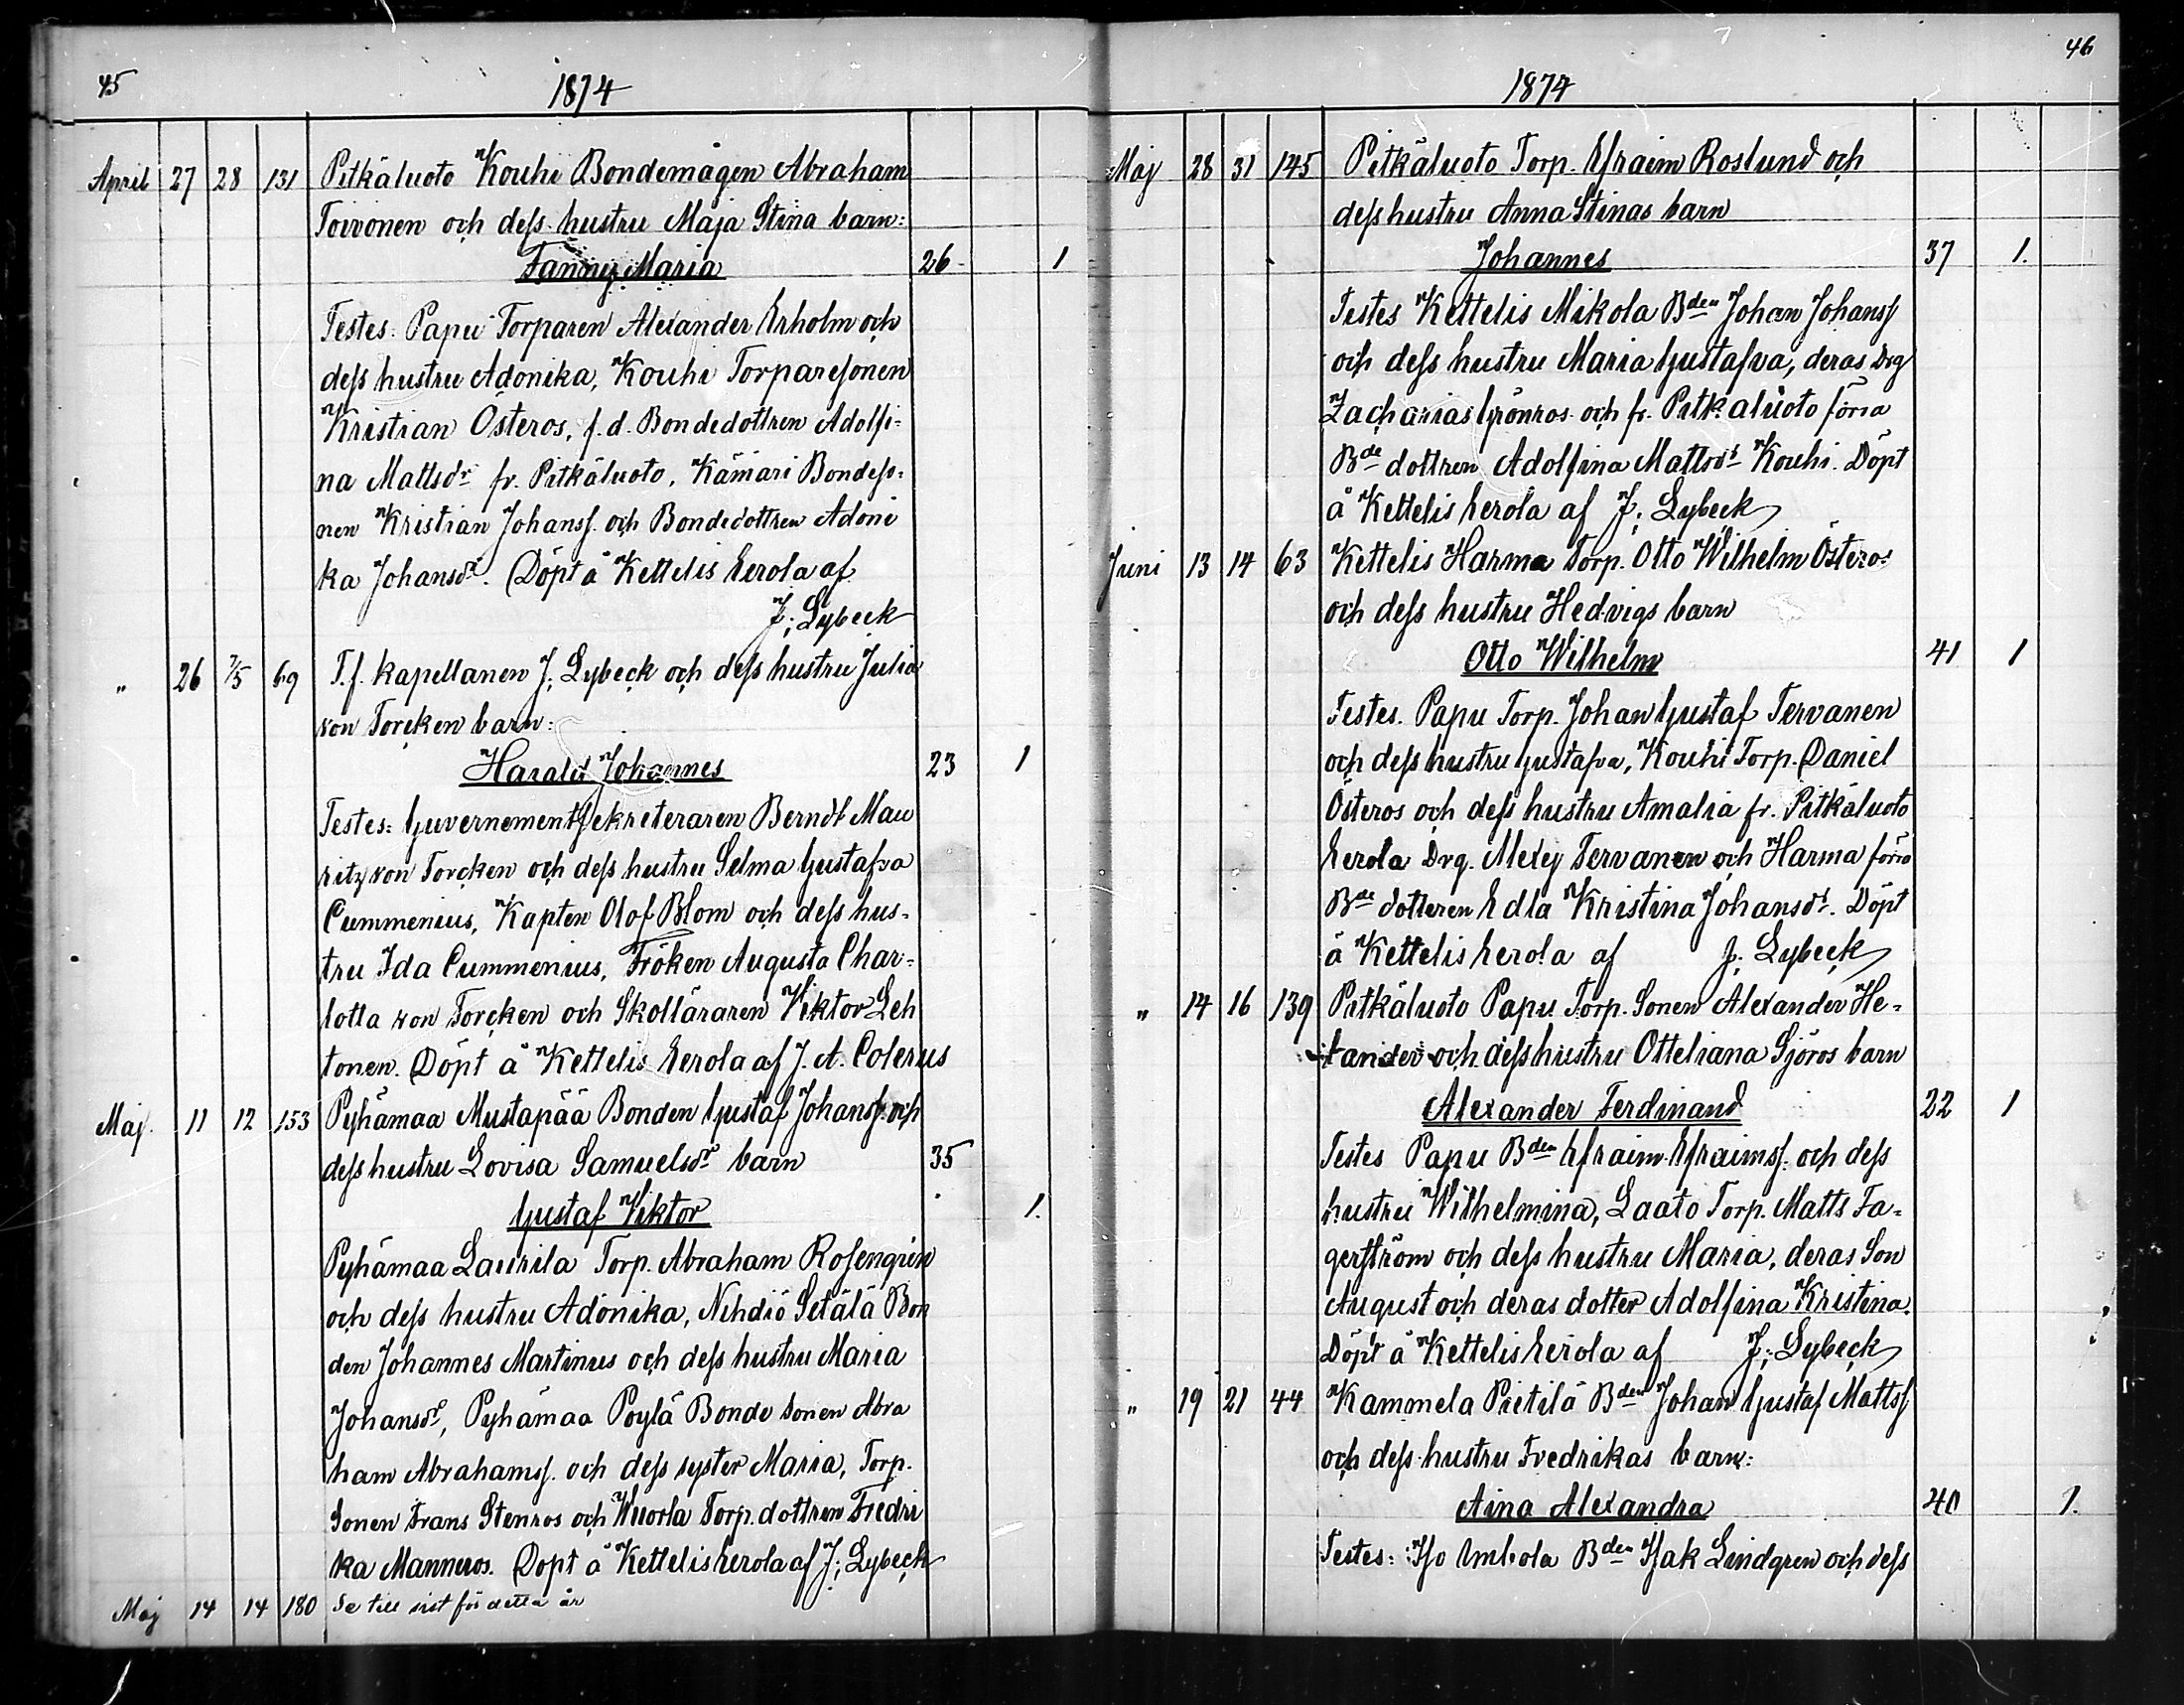 45
1874
April 27 28 131 Pitkäluoto Kouhi Bondemågen Abraham
Toivonen och dess hustru Maja Stina barn:
Fanny Maria 26 1
Testes: Papu Torparen Alexander Erholm och
dess hustru Adonika, Kouhi Torparesonen
Kristian Österos, f.d. Bondedottren Adolfi-
na Mattsdr fr. Pitkäluoto, Kämäri Bondeso-
nen Kristian Johanss. och Bondedottren Adoni
ka Johansdr. Döpt å Kettelis Eerola af
J. Lybeck
" 26 7/5 69 T.f. kapellanen J. Lybeck och dess hustru Julia
von Torcken barn:
Harald Johannes 23 1
Testes: Guvernementssekreteraren Berndt Mau
ritz von Torcken och dess hustru Selma Gustafva
Cummenius, Kapten Olof Blom och dess hus-
tru Ida Cummenius, Fröken Augusta Char-
lotta von Torcken och Skolläraren Viktor Leh
tonen. Döpt å Kettelis Eerola af J. A. Colerus
Maj. 11 12 153 Pyhämaa Mustapää Bonden Gustaf Johanss. och
dess hustru Lovisa Samuelsdr barn 35
Gustaf Viktor 1.
Pyhämaa Laurila Torp. Abraham Rosengren
och dess hustru Adonika, Nihdiö Setälä Bon
den Johannes Martinus och dess hustru Maria
Johansdr, Pyhämaa Poylä Bonde sonen Abra
ham Abrahamss. och dess syster Maria, Torp.
Sonen Frans Stenros och Wuorla Torp. dottren Fredri
ka Manneros. Döpt å Kettelis Eerola af J. Lybeck
Maj 14 14 180 Se till sist för detta år
46
1874
Maj 28 31 145 Pitkäluoto Torp. Efraim Roslund och
dess hustru Anna Stinas barn
Johannes 37 1.
Testes Kettelis Mikola Bden Johan Johanss
och dess hustru Maria Gustafva, deras Drg
Zacharias Grönros och fr. Pitkäluoto förra
Bde dottren Adolfina Mattsdr Kouhi. Döpt
å Kettelis Eerola af J. Lybeck
Juni 13 14 63 Kettelis Harma Torp. Otto Wilhelm Österos
och dess hustru Hedvigs barn
Otto Wilhelm 41 1
Testes. Papu Torp. Johan Gustaf Tervanen
och dess hustru Gustafva, Kouhi Torp. Daniel
Österos och dess hustru Amalia fr. Pitkäluoto
Eerola Drg. Alexej Tervanen och Harma förra
Bde dotteren Edla Kristina Johansdr. Döpt
å Kettelis Eerola af J. Lybeck
" 14 16 139 Pitkäluoto Papu Torp. Sonen Alexander He-
lander och dess hustru Otteliana Sjöros barn
Alexander Ferdinand 22 1
Testes Papu Bden Efraim Efraimss. och dess
hustru Wilhelmina, Laato Torp. Matts Fa-
gerström och dess hustru Maria, deras Son
August och deras dotter Adolfina Kristina.
Döpt å Kettelis Eerola af J. Lybeck
" 19 21 44 Kammela Pietilä Bden Johan Gustaf Mattss
och dess hustru Fredrikas barn:
Aina Alexandra 40 1.
Testes: Iso Bden Isak Lindgren och dess